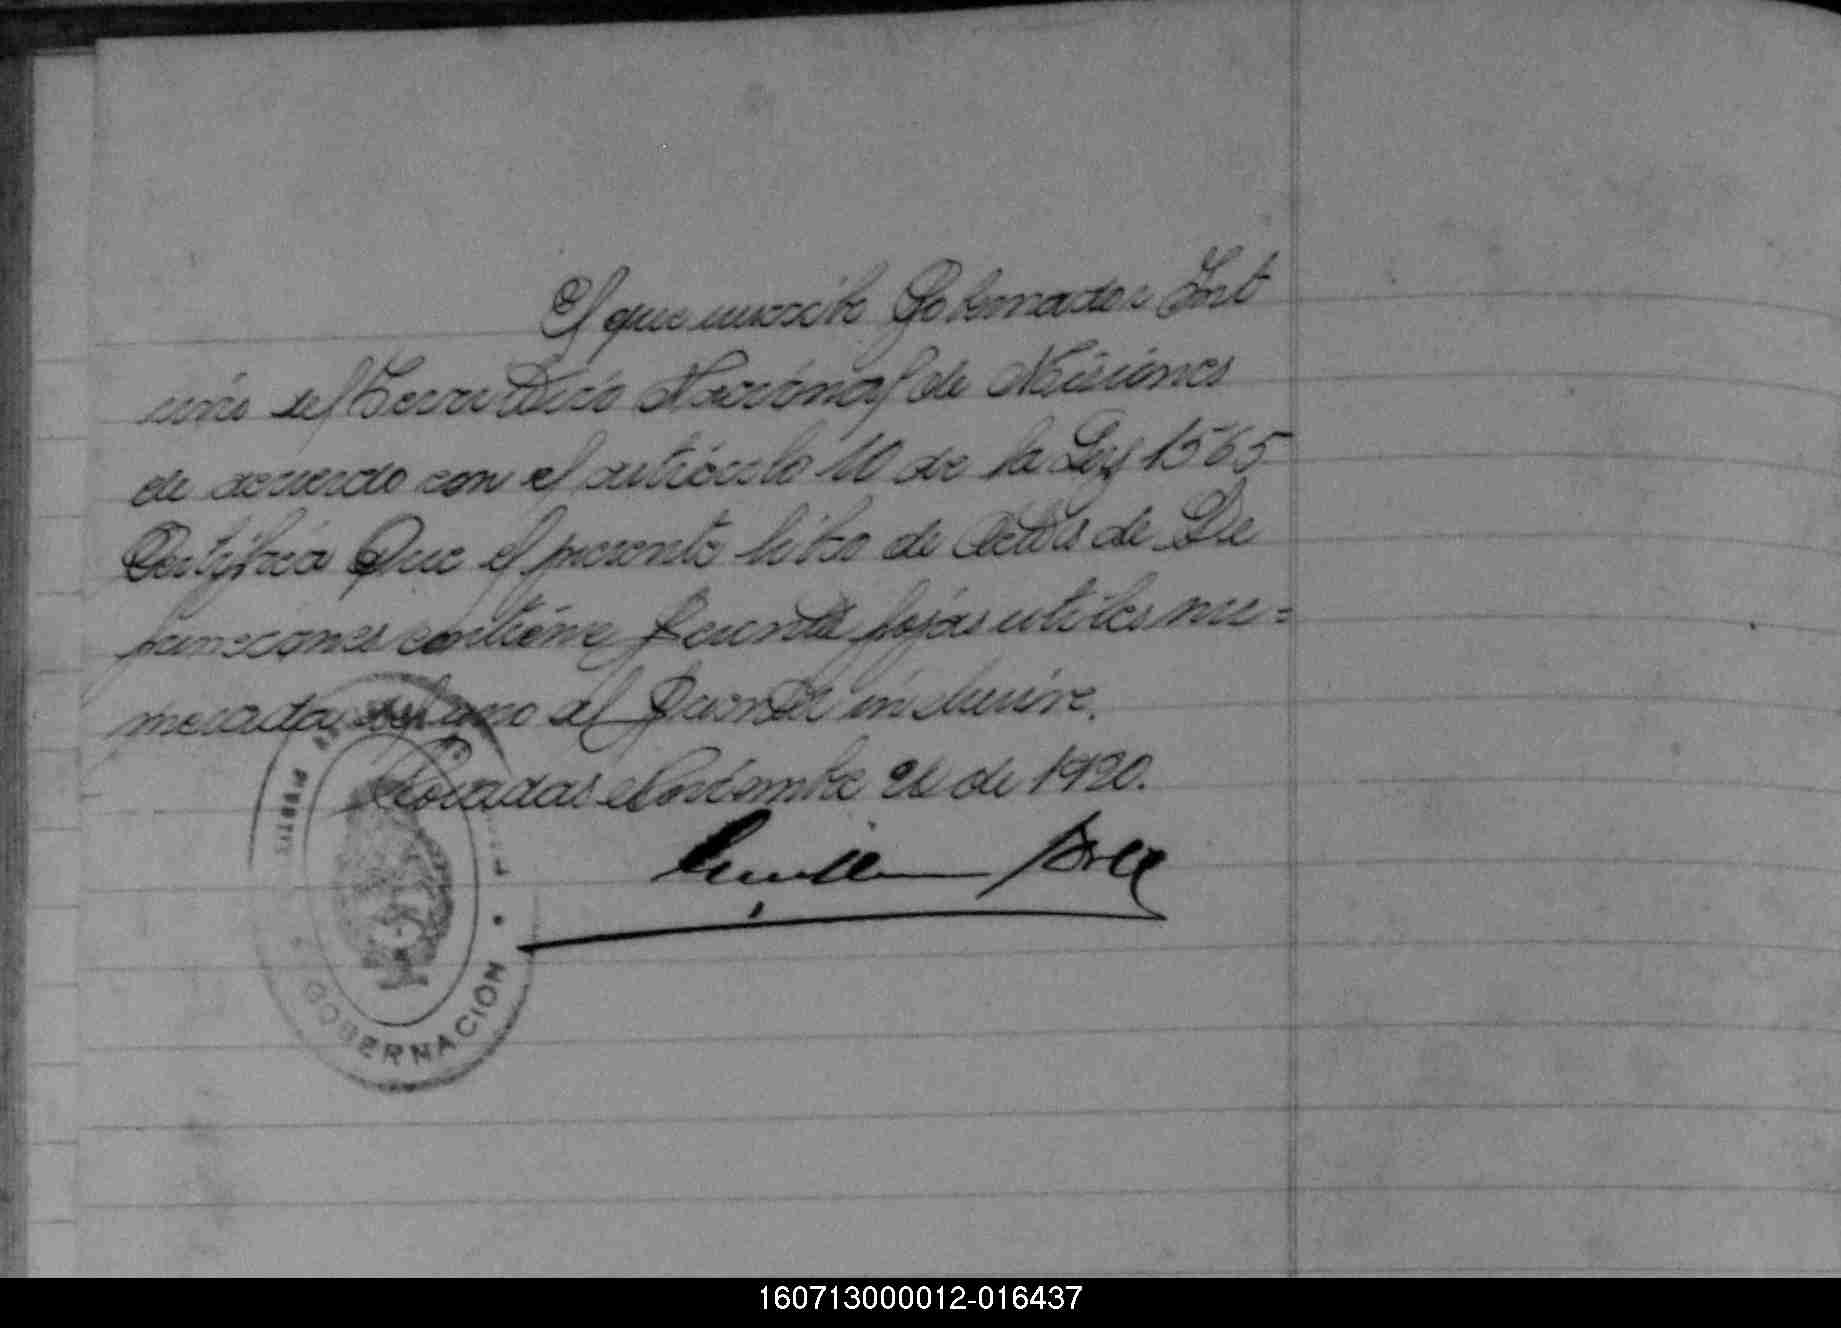 El que suscribe Gobernador Int
erino del Territorio Nacional de Misiones
de acuerdo con el artículo 10 de la Ley 1565
Certifica Que el presente libro de Actas de De
funciones contiene fojas utiles nu=
merada del uno al inclusive.
Posadas Noviembre de 1920.
Guillermo
GOBERNACION
160713000012-016437